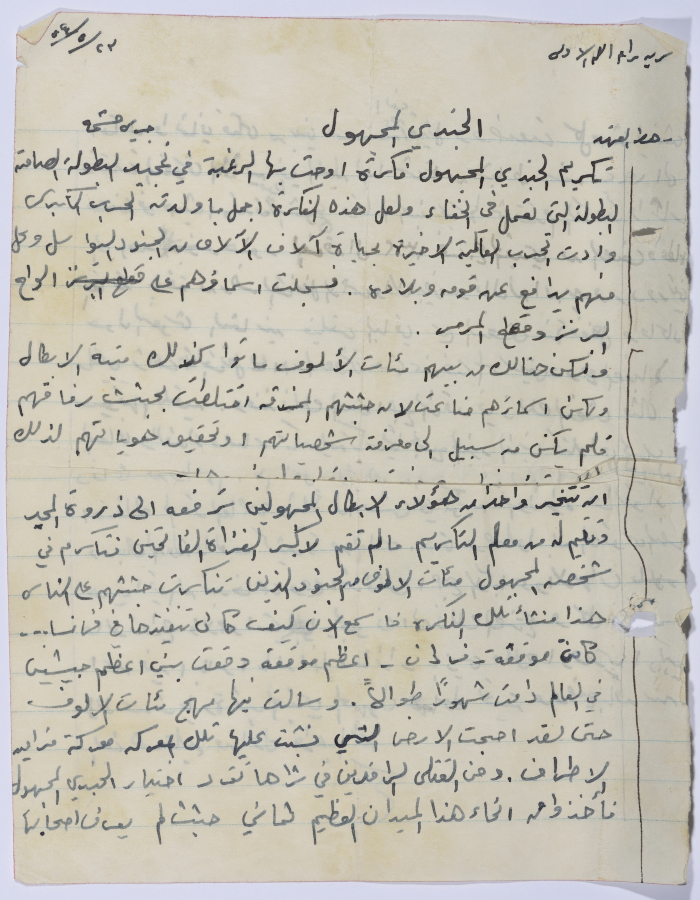 سريه رام الله الاولى
٢٣/٥/٥٤
حط العهد الجندي المجهول
تكريم الجندي المجهول فكرة اوحت بها الرغبة في تمجيد البطولة الصامتة
البطولة التي تعمل في الخفاء ولعل هذه الفكرة اجمل ما ولدته الحرب الكبرى
وادت الحرب العالمية الاخيرة بحياة آلاف الآلاف من الجنود البواسل وكل
منهم يدافع عن قومه وبلاده. فسجلت اسماؤهم على الواح
البرنز وقطع المرمر.
ولكن هنالك من بينهم مئات الألوف ماتوا كذلك ميتة الابطال
ولكن اسماءهم لان جثثهم اختلطت بجثث رفاقهم
فلم يكن من سبيل الى معرفة شخصياتهم او تحقيق هوياتهم لذلك
ان تتخير واحدا من هؤلاء الابطال المجهولين ترفعه الى ذروة المجد
وتقيم له من معالم التكريم ما لم تقم لاكبر الغزاة الفاتحين فتكرم في
شخصه المجهول مئات الالوف من الجنود الذين تنكرت جثثهم على الناس
هذا منشأ تلك الفكرة فاسمع الان كيف كان تنفيذها في فرنسا....
كانت موقعة - فردان - اعظم موقعة وقعت بين اعظم جيشين
في العالم دامت شهورًا طوالاً. وسالت فيها مهج مئات الالوف
حتى لقد اصبحت الارض التي نشبت عليها تلك المعركة معركة مترامية
الاطراف. ومن القتلى الراقدين في ثراها تقرر اختيار الجندي المجهول
فأخذوا من انحاء هذا الميدان العظيم ثماني جثث لم يعرف اصحابها